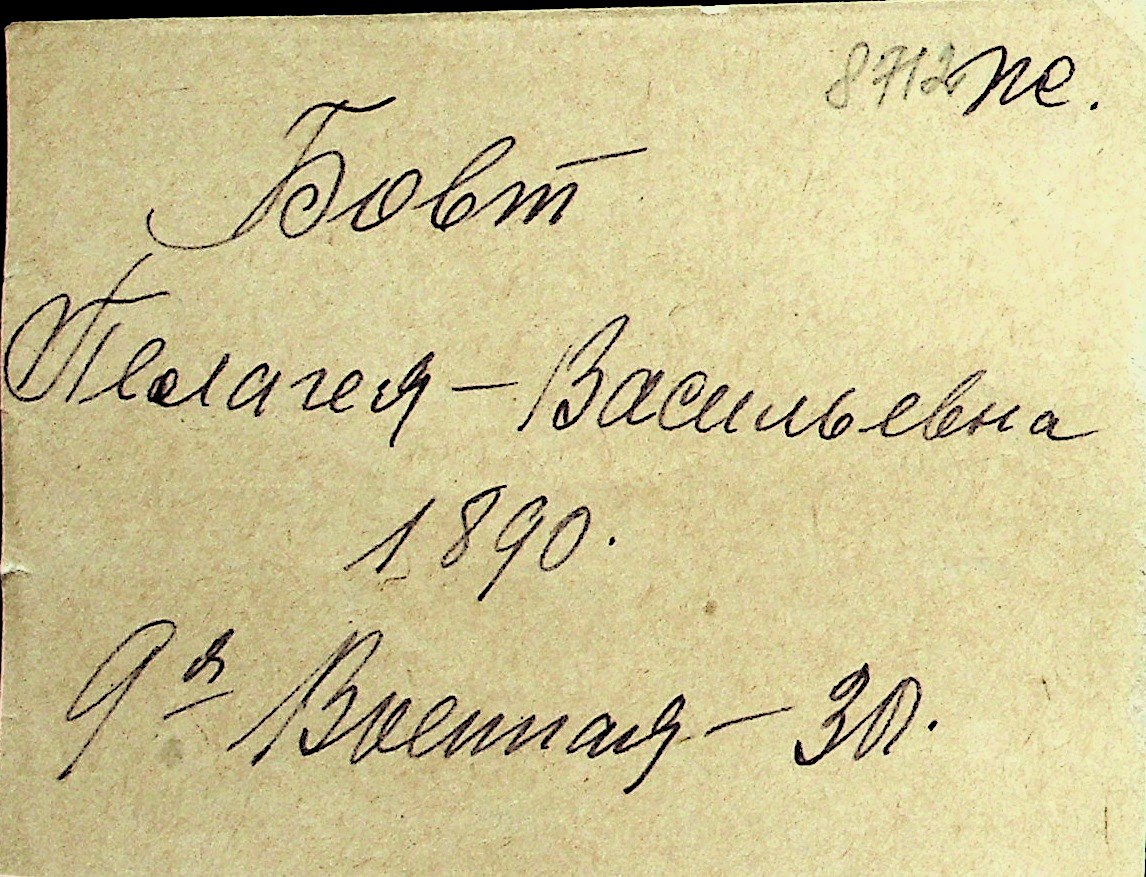 8712 пе.
Бовт
Пелагея - Васильевна
1890.
9я Военная - 30.